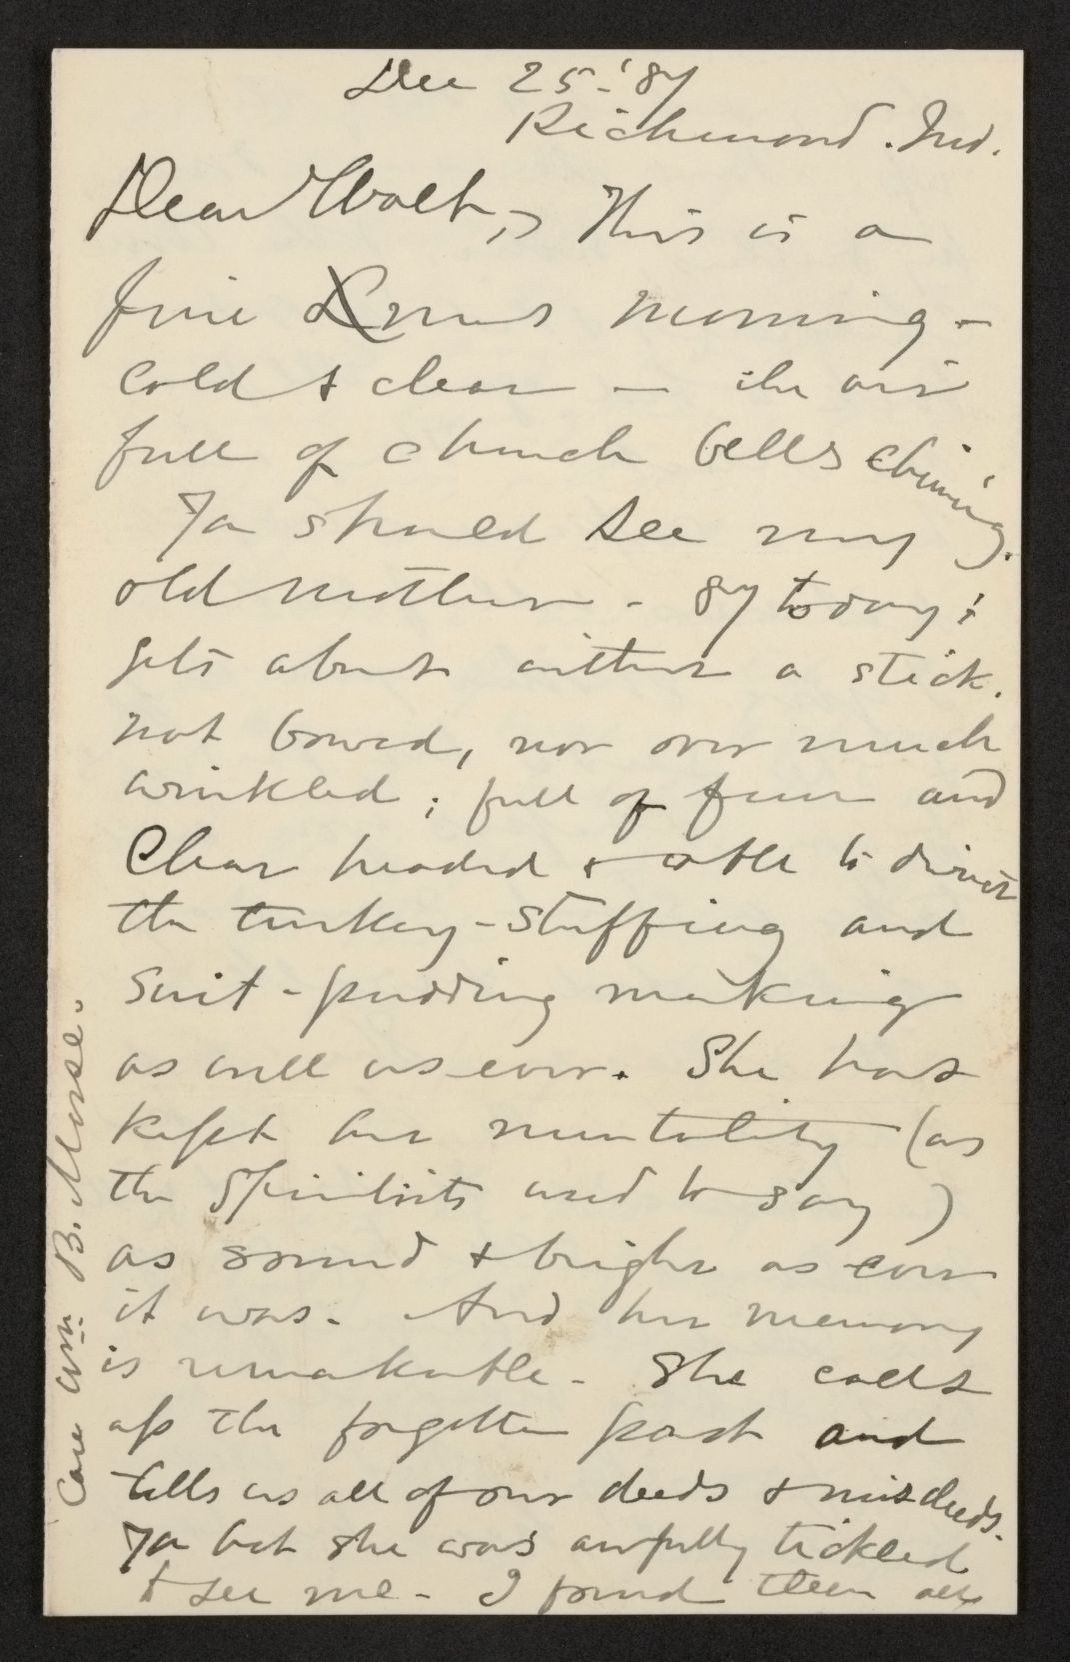 Dec 25 - '87
Richmond. Ind.
Dear Walt, This is a
fine Xmas morning -
cold & clear — the air
full of church bells chiming.
Ya should see my
old mother - 87 today!
gets about without a stick.
not bowed, nor over much
wrinkled; full of fun and
Clear headed & able to direct
the turkey-stuffing and
suit-pudding making
as well as ever. She has
kept her mentality (as
the Spiritists used to say)
as sound & bright as ever
it was. And her memory
is remarkable. She calls
up the forgotten past and
tells us all of our deeds & misdeeds.
Ya bet she was awfully tickled
to see me - I found them all
Care Wm. B. Morse.